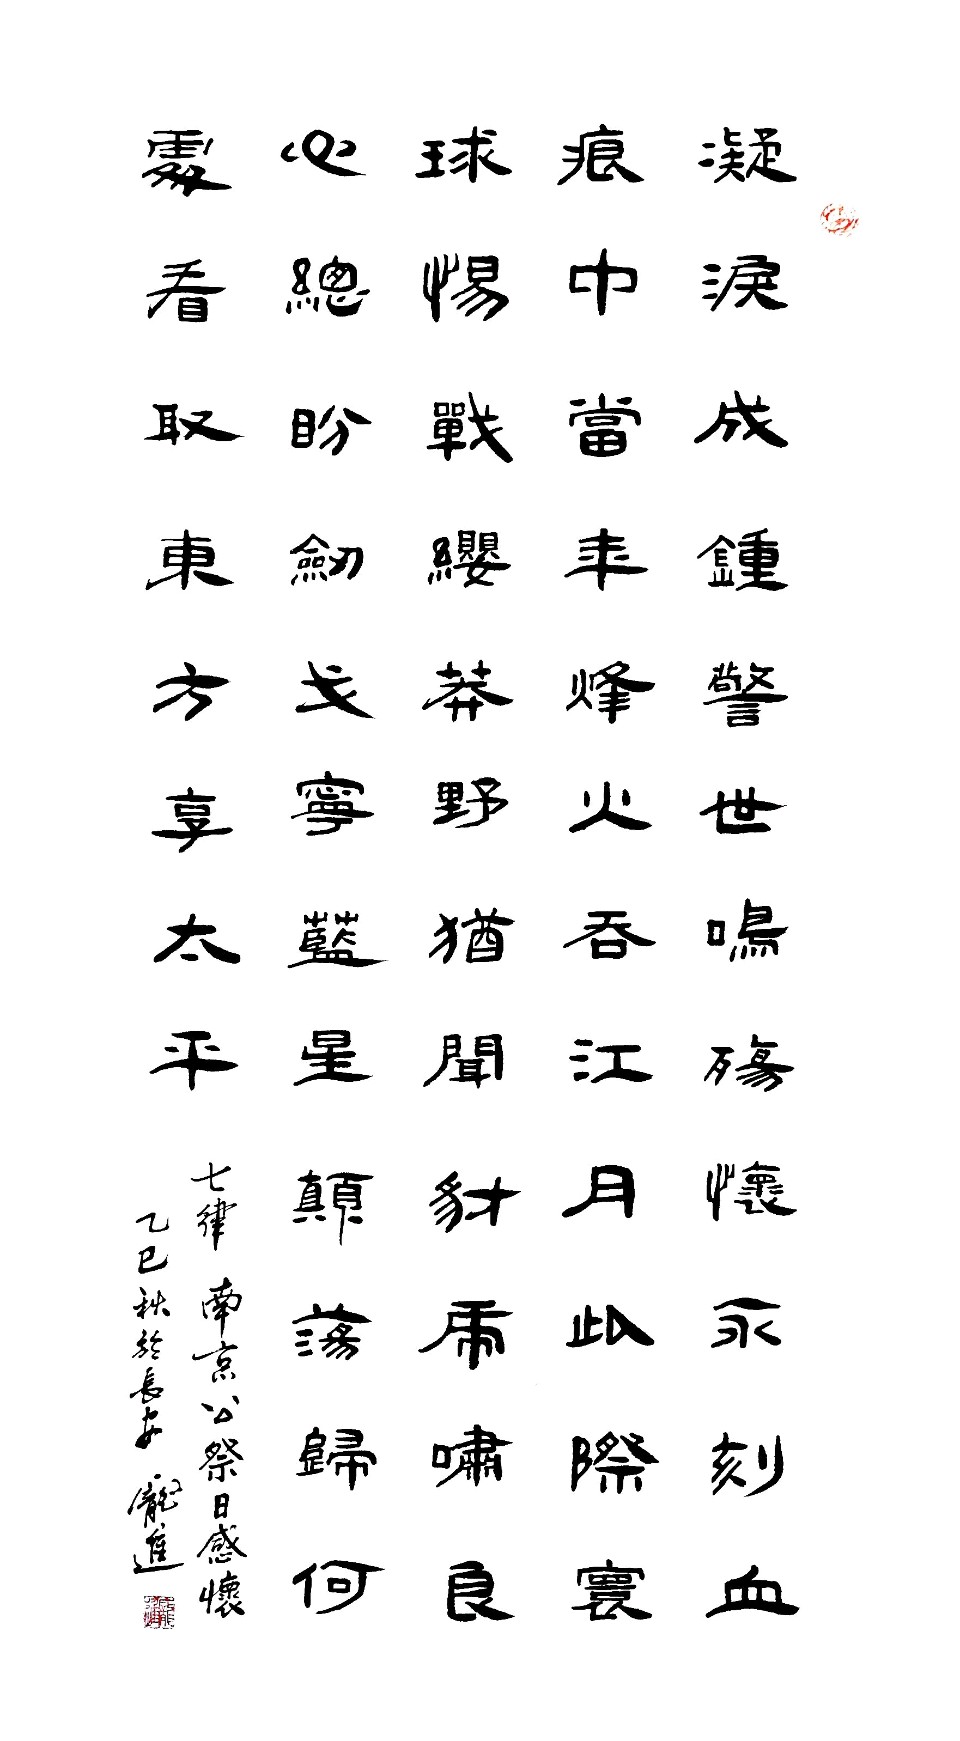 凝淚成鍾警世鳴殤懷永刻血
痕中當年烽火吞江月此際寰
球惕戰纓莽野猶聞豺虎嘯良
心總盼劒戈寧藍星顛蕩歸何
處看取東方享太平
七律 南京公祭日感懷
乙巳秋於長安 龐進